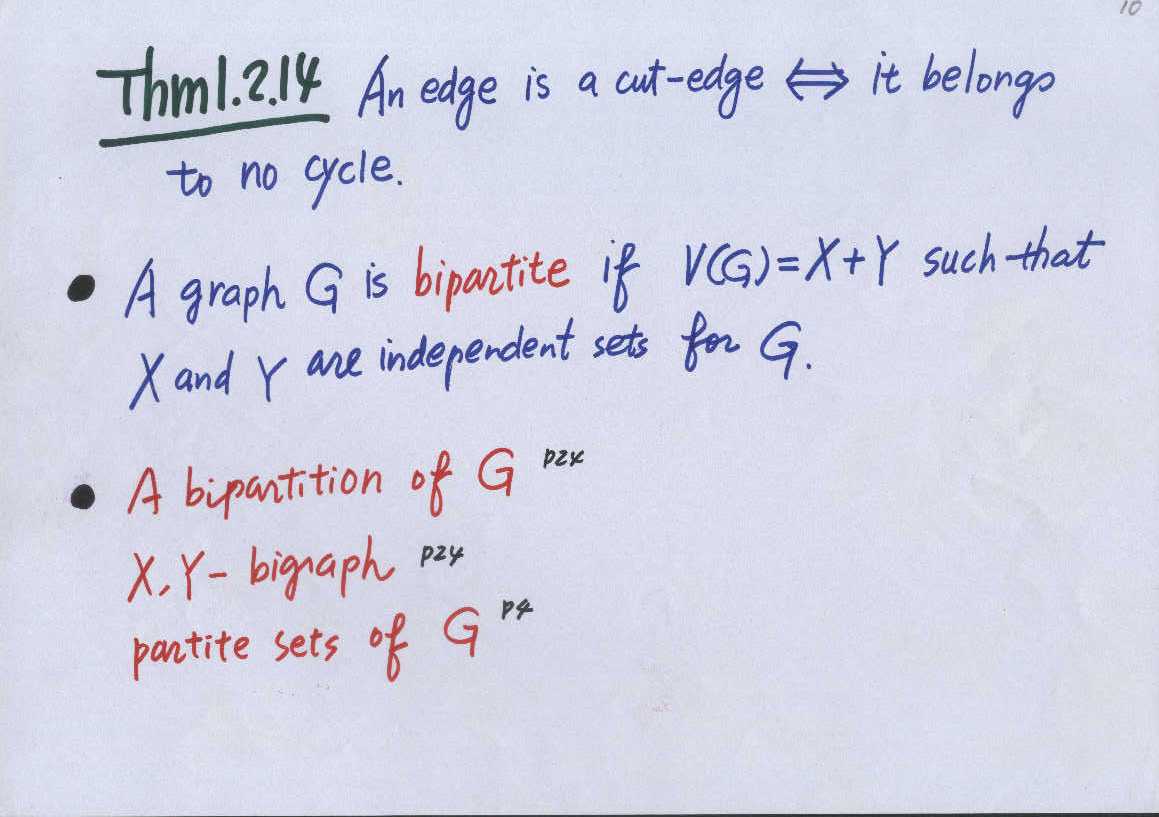 10
Thm 1.2.14 An edge is a cut-edge ⟺ it belongs
to no cycle.
• A graph G is bipartite if V(G)=X+Y such that
X and Y are independent sets for G.
• A bipartition of G p24
X,Y-bigraph p24
partite sets of G p4